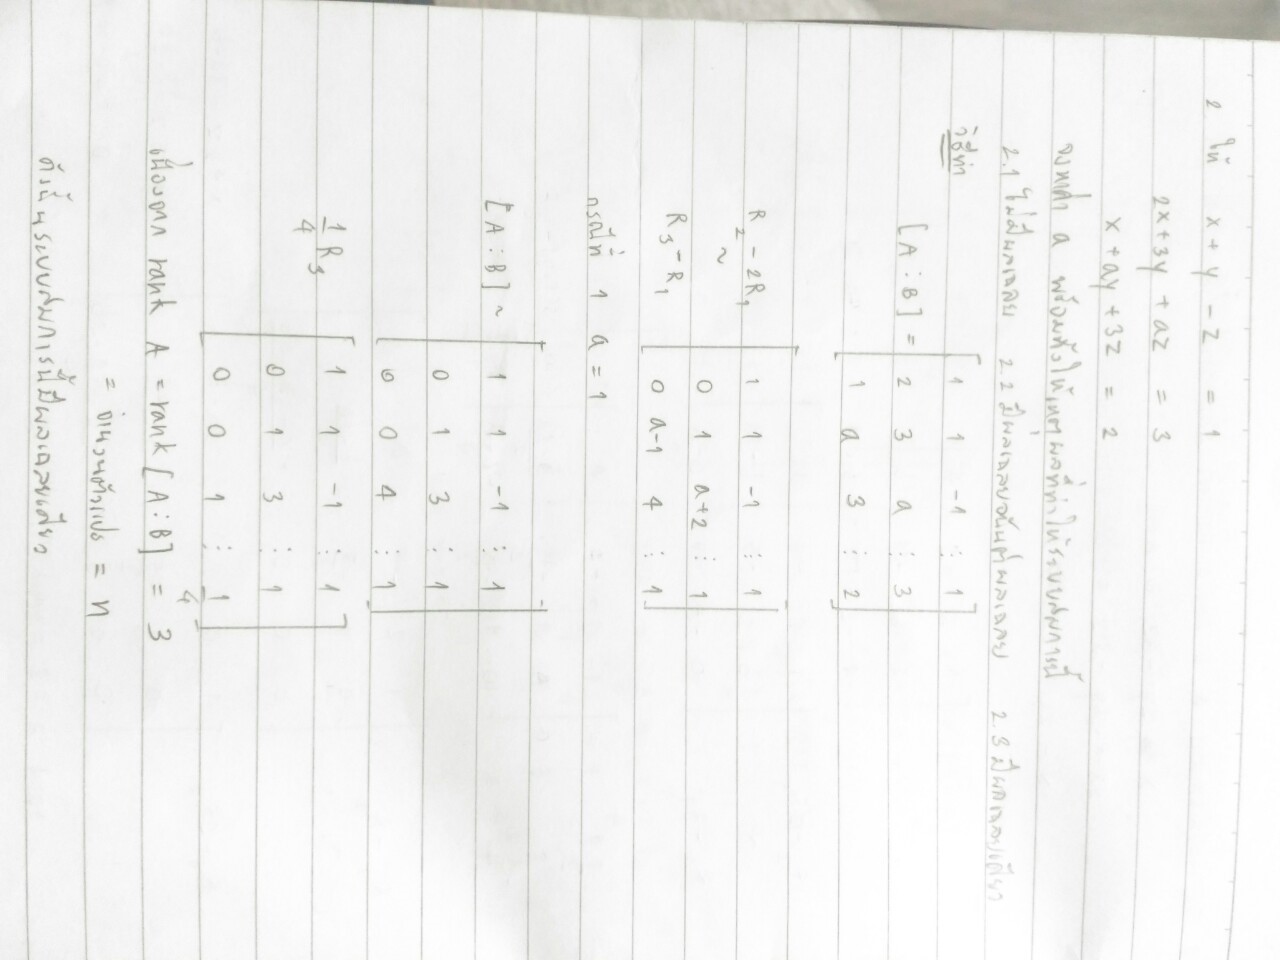 2 ให้ x + y - z = 1
2x+3y + az = 3
x + ay + 3z = 2
จงหาค่า a พร้อมทั้งให้เหตุผลที่ทำให้ระบบสมการนี้
2.1 ไม่มีผลเฉลย 2.2 มีผลเฉลยอนันต์ผลเฉลย 2.3 มีผลเฉลยเดียว
วิธีทำ
1 1 -1 ⋮ 1
[A ⋮ B] = 2 3 a ⋮ 3
1 a 3 ⋮ 2
R₂ - 2R₁ 1 1 -1 ⋮ 1
~ 0 1 a+2 ⋮ 1
R₃ - R₁ 0 a-1 4 ⋮ 1
กรณีที่ 1 a = 1
[A ⋮ B] ~ 1 1 -1 ⋮ 1
0 1 3 ⋮ 1
0 0 4 ⋮ 1
1/4 R₃ 1 1 -1 ⋮ 1
0 1 3 ⋮ 1
0 0 1 ⋮ 1/4
เนื่องจาก rank A = rank [A ⋮ B] = 3
= จำนวนตัวแปร = n
ดังนั้นระบบสมการนี้มีผลเฉลยเดียว